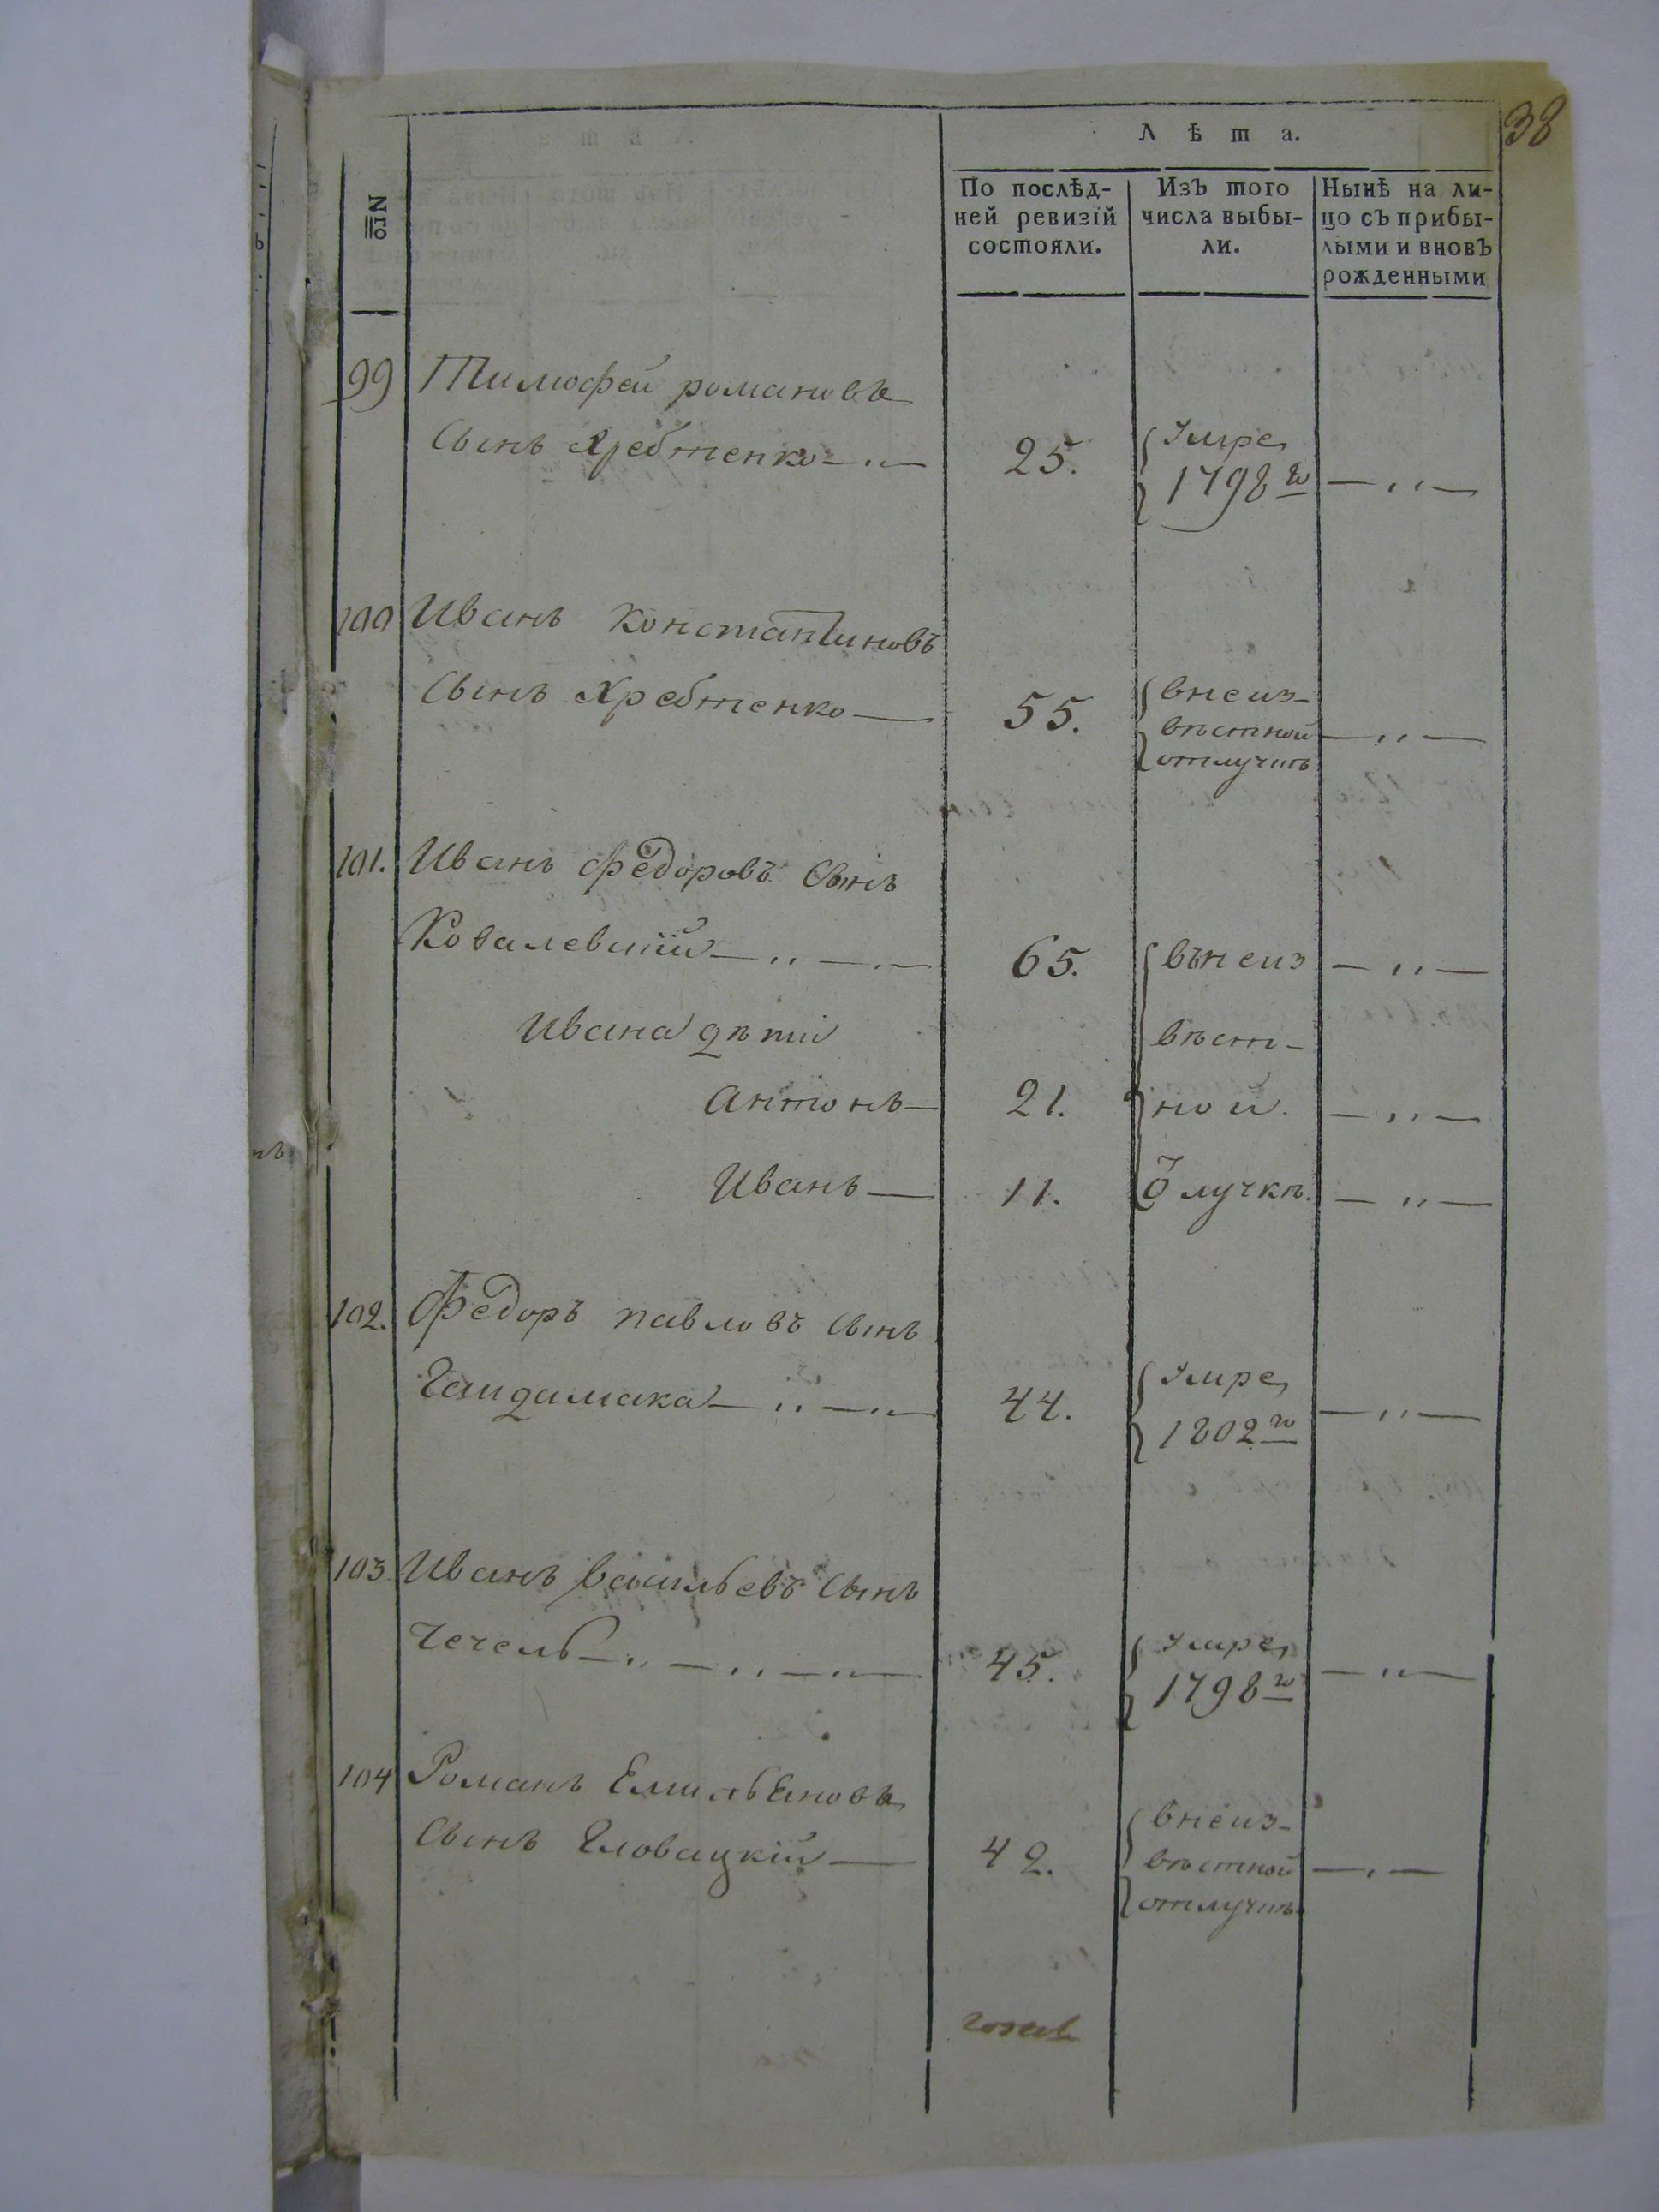 38
Л ѣ т а.
№
По послѣд-
ней ревизій
состояли.
Изъ того
числа выбы-
ли.
Нынѣ на ли-
цо съ прибы-
лыми и вновъ
рожденными
99 Тимофей романовъ
Сынъ Хребтенко — „ — 25. Умре 1798го — „ —
100 Иванъ Константиновъ
Сынъ Хребтенко — 55. внеиз-
вѣстной — „ —
отлучкѣ
101. Иванъ Федоровъ Сынъ
Ковалевский — „ — „ — 65. внеиз — „ —
Ивана дѣти вѣст-
антонъ — 21. ной. — „ —
Иванъ — 11. ѿлучкѣ. — „ —
102. Федоръ павловъ Сынъ
Гайдамака — „ — „ — 44. Умре 1802го — „ —
103 Иванъ васильевъ Сынъ
Чечель — „ — „ — „ — 45. Умре 1798го — „ —
104 Романъ Емильяновъ
Сынъ Гловацкій — 42. внеиз-
вѣстной — „ —
отлучкѣ